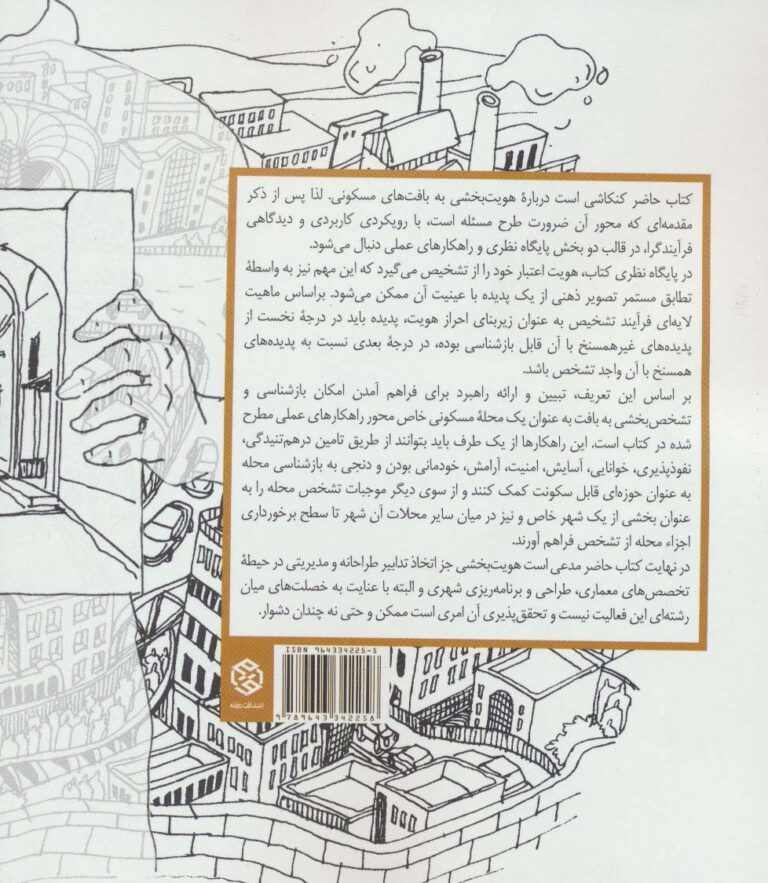 کتاب حاضر کنکاشی است دربارهٔ هویت‌بخشی به بافت‌های مسکونی. لذا پس از ذکر
مقدمه‌ای که محور آن ضرورت طرح مسئله است، با رویکردی کاربردی و دیدگاهی
فرآیندگرا، در قالب دو بخش پایگاه نظری و راهکارهای عملی دنبال می‌شود.
در پایگاه نظری کتاب، هویت اعتبار خود را از تشخیص می‌گیرد که این مهم نیز به واسطهٔ
تطابق مستمر تصویر ذهنی از یک پدیده با عینیت آن ممکن می‌شود. براساس ماهیت
لایه‌ای فرآیند تشخیص به عنوان زیربنای احراز هویت، پدیده باید در درجهٔ نخست از
پدیده‌های غیرهمسنخ با آن قابل بازشناسی بوده، در درجهٔ بعدی نسبت به پدیده‌های
همسنخ با آن واجد تشخص باشد.
بر اساس این تعریف، تبیین و ارائه راهبرد برای فراهم آمدن امکان بازشناسی و
تشخص‌بخشی به بافت به عنوان یک محلهٔ مسکونی خاص محور راهکارهای عملی مطرح
شده در کتاب است. این راهکارها از یک طرف باید بتوانند از طریق تامین درهم‌تنیدگی،
نفوذپذیری، خوانایی، آسایش، امنیت، آرامش، خودمانی بودن و دنجی به بازشناسی محله
به عنوان حوزه‌ای قابل سکونت کمک کنند و از سوی دیگر موجبات تشخص محله را به
عنوان بخشی از یک شهر خاص و نیز در میان سایر محلات آن شهر تا سطح برخورداری
اجزاء محله از تشخص فراهم آورند.
در نهایت کتاب حاضر مدعی است هویت‌بخشی جز اتخاذ تدابیر طراحانه و مدیریتی در حیطهٔ
تخصص‌های معماری، طراحی و برنامه‌ریزی شهری و البته با عنایت به خصلت‌های میان
رشته‌ای این فعالیت نیست و تحقق‌پذیری آن امری است ممکن و حتی نه چندان دشوار.
ISBN 964334225-5
9 789643 342258
انتشارات روزنه